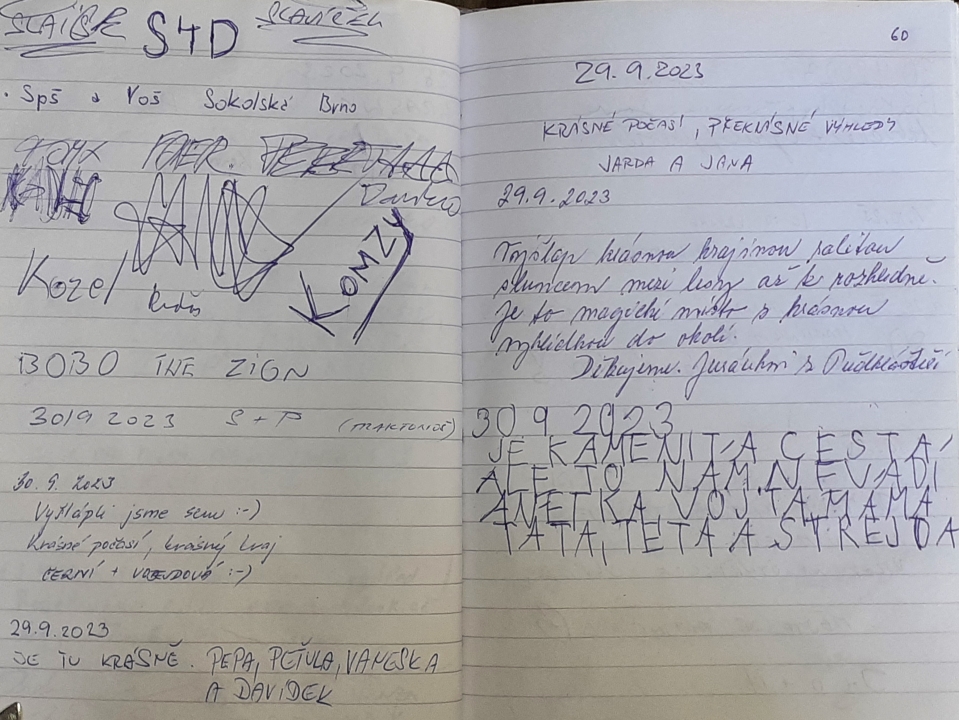 S4D
SPŠ a VOŠ Sokolská Brno
Kozel
KOMZY
BOBO THE ZIGN
30/9 2023 S + P
30. 9. 2023
Vyšlápli jsme sem :-)
Krásné počasí, krásný kraj
ČERNÍ + :-)
29.9.2023
JE TU KRÁSNĚ. PEPA, PEŤULA, VANESKA
A DAVÍDEK
60
29.9.2023
KRÁSNÉ POČASÍ, PŘEKRÁSNÉ VÝHLEDY
JARDA A JANA
29.9.2023
krásnou krajinou zalitou
sluncem mezi lesy až k rozhledně.
Je to magické místo s krásnou
vyhlídkou do okolí.
Děkujeme.
30 9 2023
JE KAMENITÁ CESTA,
ALE TO NÁM NEVADÍ
ANETKA VOJTA MAMA
TATA, TETA A STREJDA